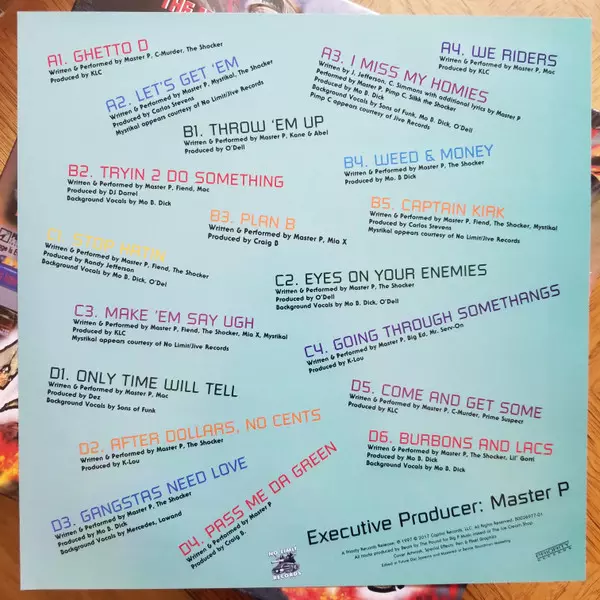 A1. GHETTO D
Written & Performed by Master P, C-Murder, The Shocker
Produced by KLC
A2. LET'S GET 'EM
Written & Performed by Master P, Mystikal, The Shocker
Produced by Carlos Stevens
Mystikal appears courtesy of No Limit/Jive Records
A3. I MISS MY HOMIES
Written by J. Jefferson, C. Simmons with additional lyrics by Master P
Performed by Master P, Pimp C, Silkk the Shocker
Produced by Mo B. Dick
Background Vocals by Sons of Funk, Mo B. Dick, O'Dell
Pimp C appears courtesy of Jive Records
A4. WE RIDERS
Written & Performed by Master P, Mac
Produced by KLC
B1. THROW 'EM UP
Written & Performed by Master P, Kane & Abel
Produced by O'Dell
B2. TRYIN 2 DO SOMETHING
Written & Performed by Master P, Fiend, Mac
Produced by DJ Darrel
Background Vocals by Mo B. Dick
B3. PLAN B
Written & Performed by Master P, Mia X
Produced by Craig B
B4. WEED & MONEY
Written & Performed by Master P, The Shocker
Produced by Mo. B Dick
B5. CAPTAIN KIRK
Written & Performed by Master P, Fiend, The Shocker, Mystikal
Produced by Carlos Stevens
Mystikal appears courtesy of No Limit/Jive Records
C1. STOP HATIN
Written & Performed by Master P, Fiend, The Shocker
Produced by Randy Jefferson
Background Vocals by Mo B. Dick, O'Del
C2. EYES ON YOUR ENEMIES
Written & Performed by Master P, The Shocker
Produced by O'Dell
Background Vocals by Mo B. Dick, O'Dell
C3. MAKE 'EM SAY UGH
Written & Performed by Master P, Fiend, The Shocker, Mia X, Mystikal
Produced by KLC
Mystikal appears courtesy of No Limit/Jive Records
C4. GOING THROUGH SOMETHANGS
Written & Performed by Master P, Big Ed, Mr. Serv-On
Produced by K-Lou
D1. ONLY TIME WILL TELL
Written & Performed by Master P, Mac
Produced by Dez
Background Vocals by Sons of Funk
D2. AFTER DOLLARS, NO CENTS
Written & Performed by Master P, The Shocker
Produced by K-Lou
D3. GANGSTAS NEED LOVE
Written & Performed by Master P, The Shocker
Produced by Mo B. Dick
Background Vocals by Mercedes, Lawand
D4. PASS ME DA GREEN
Written & Performed by Master P
Produced by Craig B.
D5. COME AND GET SOME
Written & Performed by Master P, C-Murder, Prime Suspect
Produced by KLC
D6. BURBONS AND LACS
Written & Performed by Master P, The Shocker, Lil' Gotti
Produced by Mo B. Dick
Background Vocals by Mo B. Dick
Executive Producer: Master P
NO LIMIT
RECORDS
PRIORITY
RECORDS